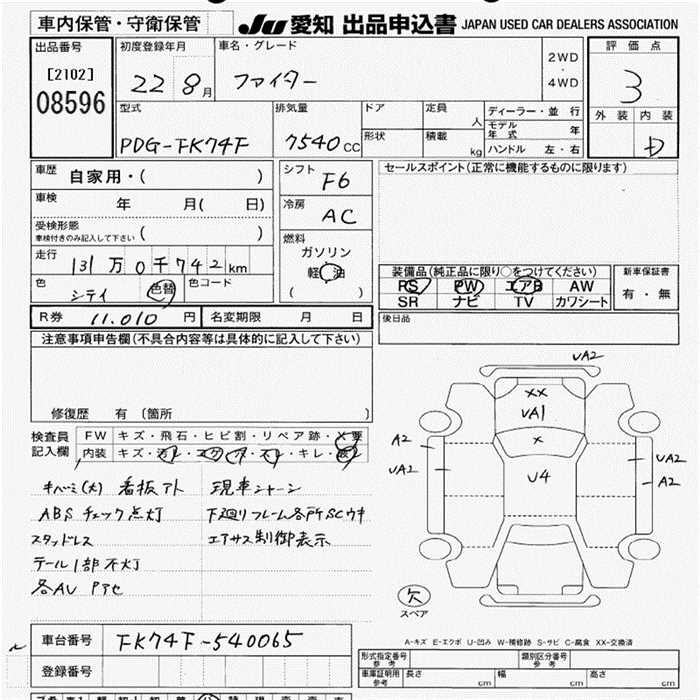 車内保管・守衛保管
JU 愛知 出品申込書 JAPAN USED CAR DEALERS ASSOCIATION
出品番号
[2102]
08596
初度登録年月
22 8月
車名・グレード
ファイター
2WD
・
4WD
評価点
3
外装 内装
D
型式
PDG-FK74F
排気量
7540cc
ドア
形状
定員
人
積載
kg
ディーラー・並行
モデル年式 年
ハンドル 左・右
車歴
自家用・( )
車検
年 月( 日)
受検形態
車検付きのみ記入して下さい ( )
走行
131万0千742km
色
シテイ
色替
色コード
シフト
F6
冷房
AC
燃料
ガソリン
軽油
( )
セールスポイント(正常に機能するものに限ります)
装備品(純正品に限り○をつけてください)
PS PW エアB AW
SR ナビ TV カワシート
新車保証書
有・無
後日品
R券 11.010円
名変期限 月 日
注意事項申告欄(不具合内容等は具体的に記入して下さい)
修復歴 有 〔箇所 〕
検査員
記入欄
FW キズ・飛石・ヒビ割・リペア跡・X要
内装 キズ・汚レ・コゲ・穴・スレ・キレ・
キバミ(大) 看板アト
現車シャーシ
ABSチェック点灯
下廻りフレーム各所SCウキ
スタッドレス
エアサス制御表示
テール1部不灯
各AU Pアセ
UA2
XX
UA1
X
U4
A2
UA2
UA2
A2
欠
スペア
A-キズ E-エクボ U-凹み W-補修跡 S-サビ C-腐食 XX-交換済
車台番号 FK74F-540065
登録番号
形式指定番号
参考
類別区分番号
参考
車庫証明用
参考
長さ cm
幅 cm
高さ cm